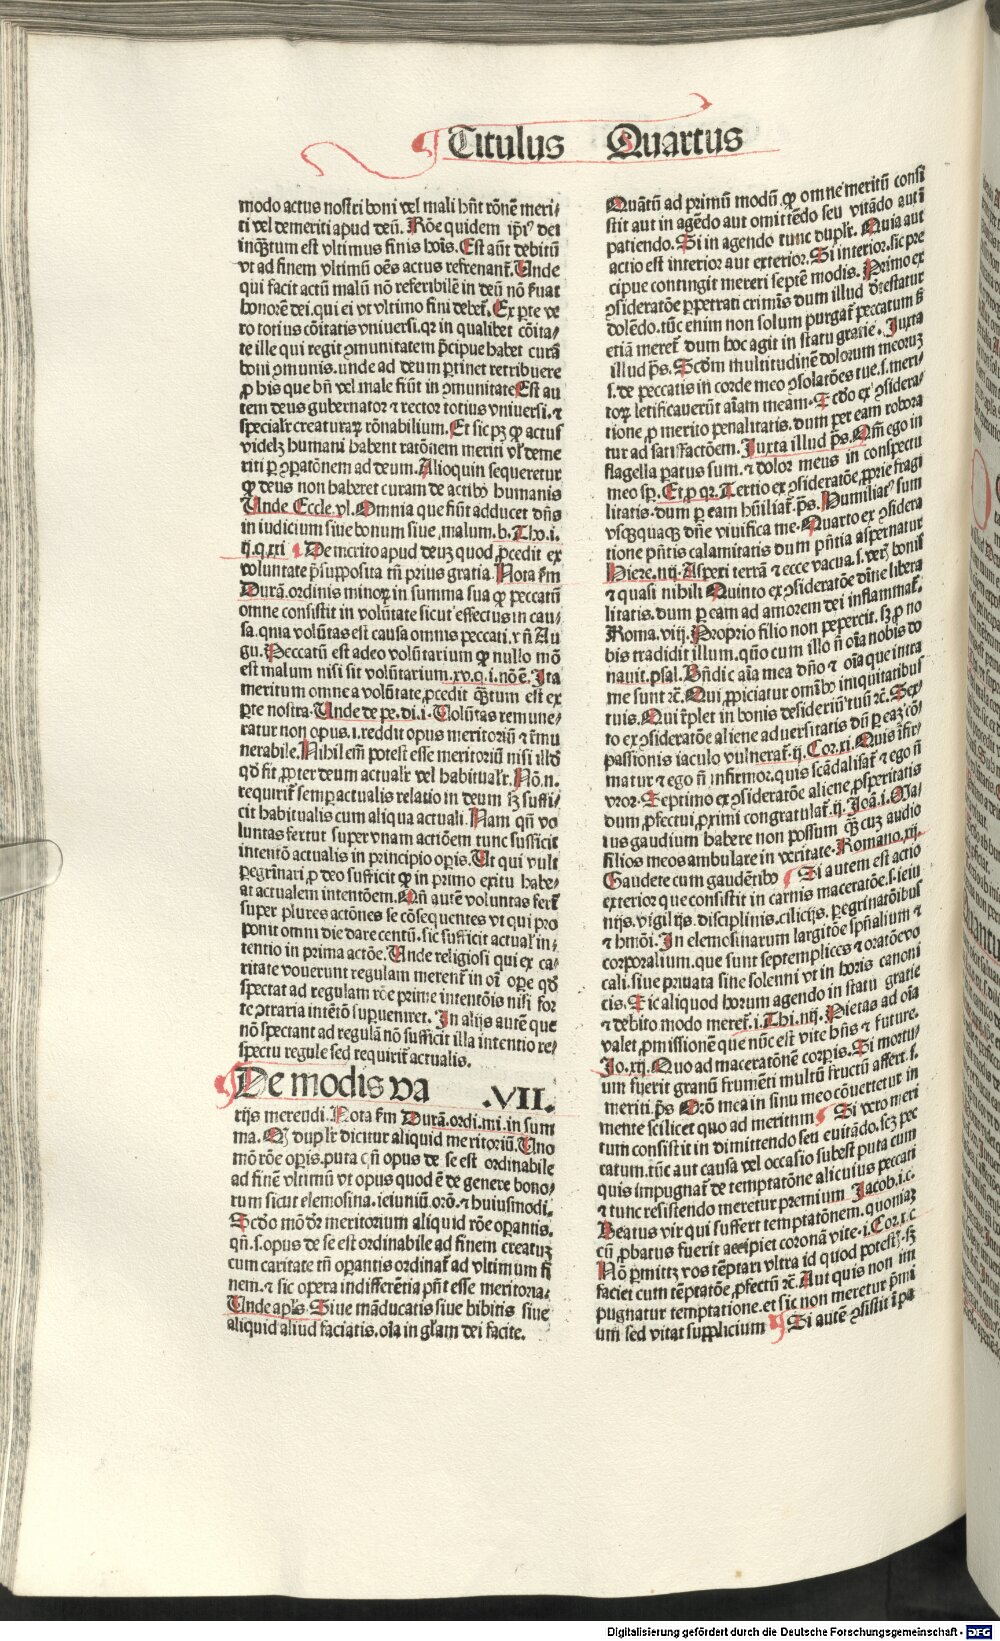 Titulus Quartus
modo actus nostri boni vel mali hñt rõnem meri⸗
ti vel demeriti apud deũ. Rõe quidem ipi⁹ dei
inq̃tum est vltimus finis hois. Est aũt debitũ
vt ad finem vltimũ oẽs actus referant᷑. Unde
qui facit actũ malũ nõ referibilẽ in deũ nõ ẜuat
honorẽ dei. qui ei vt vltimo fini debet᷑. Ex ꝑte ve
ro totius cõitatis vniuersi. qꝛ in qualibet cõita⸗
te ille qui regit ꝯmunitatem p̃cipue habet curã
boni ꝯmunis. unde ad deum ꝑtinet retribuere
ꝓ his que bñ vel male fiũt in ꝯmunitate Est au
tem deus gubernator ⁊ rector totius vniuersi. ⁊
specialr̃ creaturaꝝ rõnabilium. Et sic pꝫ ꝙ actus
videlꝫ humani habent ratõnem meriti vl̃ deme
riti ꝑ ꝯꝑatõnem ad deum. Alioquin sequeretur
ꝙ deus non haberet curam de actibꝰ humanis
Unde Eccle. vl. Omnia que fiũnt adducet dñs
in iudicium siue bonum siue, malum. h. Tho. i.
ij. q. xxi De merito apud deuꝫ quod ꝓcedit ex
voluntate p̃supposita tñ prius gratia. Nota ẜm
Durã. ordinis minoꝝ in summa sua ꝙ peccatũ
omne consistit in volũtate sicut effectus in cau⸗
sa. quia volũtas est causa omnis peccati. vñ Au
gu. Peccatũ est adeo volũtarium ꝙ nullo mõ
est malum nisi sit volũtarium. xv. q. i. nõ ẽ. Ita
meritum omne a volũtate ꝓcedit q̃tum est ex
ꝑte nostra. Unde de pe. di. i. Volũtas remune⸗
ratur non opus. i. reddit opus meritoriũ ⁊ r̃mu
nerabile. Nihil em̃ potest esse meritoriũ nisi illđ
qđ fit ꝓpter deum actualr̃ vel habitualr̃. Nõ. n.
requirit᷑ semꝑ actualis relatio in deum ſꝫ suffi⸗
cit habitualis cum aliqua actuali. Nam qñ vo
luntas fertur super vnam actõem tunc sufficit
intentõ actualis in principio opis. Ut qui vult
ꝑegrinari ꝓ deo sufficit ꝙ in primo exitu habe⸗
at actualem intentõem. Qñ autẽ voluntas fert᷑
super plures actõnes se cõsequentes vt qui pro
ponit omni die dare centũ. sic sufficit actual̃ in⸗
tentio in prima actõe. Unde religiosi qui ex ca⸗
ritate vouerunt regulam merent᷑ in oi oꝑe qđ
spectat ad regulam rõe prime intentõis nisi for
te ꝯtraria intẽtõ suꝑueniret. In alijs autẽ que
nõ spectant ad regulã nõ sufficit illa intentio re⸗
spectu regule sed requirit᷑ actualis.
De modis va .VII.
rijs merendi. Nota ẜm Durã. ordi. mi. in sum
ma. Qđ duplr̃ dicitur aliquid meritoriũ. Uno
mõ rõe oꝑis. puta qñ opus de se est ordinabile
ad finẽ vltimũ vt opus quod ẽ de genere bono⸗
rum sicut elemosina. ieiuniũ. orõ. ⁊ huiusmodi.
Scđo mõ dr̃ meritorium aliquid rõe oꝑantis.
qñ. s. opus de se est ordinabile ad finem creatuꝫ
cum caritate tñ oꝑantis ordinat᷑ ad vltimum fi
nem. ⁊ sic opera indifferẽtia pñt esse meritoria.
Unde apl̃s. Siue mãducatis siue bibitis siue
aliquid aliud faciatis. oĩa in gl̃am dei facite.
Quãtũ ad primũ modũ. ꝙ omne meritũ consi
stit aut in agẽdo aut omittẽdo seu vitãdo aut ĩ
patiendo. Si in agendo tunc duplr̃. Quia aut
actio est interior aut exterior. Si interior. sic pre
cipue contingit mereri septẽ modis. Primo ex
ꝯsideratõe ꝑpetrati crimĩs dum illud detestatur
dolẽdo. tũc enim non solum purgat᷑ peccatum ẜ
etiã meret᷑ dum hoc agit in statu gratie. Juxta
illud ps. Scđm multitudinẽ dolorum meorum
s. de peccatis in corde meo ꝯsolatões tue. s. meri⸗
toꝝ letificauerũt aĩam meam. Scđo ex ꝯsidera⸗
tione ꝓ merito penalitatis. dum per eam robora
tur ad satisfactõem. Juxta illud ps. Qm̃ ego in
flagella paratus sum. ⁊ dolor meus in conspectu
meo sp. Et ꝓ qꝛ. Tertio ex ꝯsideratõe, ꝓprie fragi
litatis. dum ꝑ eam hũiliat᷑. ps. Humiliat⁹ sum
vsq̃quaqꝫ dñe viuifica me. Quarto ex ꝯsidera
tione pñtis calamitatis dum pñtia aspernatur
Hiere. iiij. Aspexi terrã ⁊ ecce vacua. s. veris bonis
⁊ quasi nihili Quinto ex ꝯsideratõe diuĩe libera
litatis. dum ꝑ eam ad amorem dei inflammat᷑.
Roma. viij. Proprio filio non pepercit. sꝫ ꝓ no
bis tradidit illum. quõ cum illo ñ oĩa nobis do
nauit. psal. Bñdic aĩa mea dño ⁊ oĩa que intra
me sunt ⁊c. Qui ꝓpiciatur omĩbꝰ iniquitatibus
tuis. Qui r̃plet in bonis desideriũ tuũ ⁊c. Sex⸗
to ex ꝯsideratõe aliene aduersitatis dũ ꝑ eaꝫ cõ⸗
passionis iaculo vulnerat᷑. ij. Cor. xi. Quis ĩfir⸗
matur ⁊ ego ñ infirmor. quis scãdalisat᷑ ⁊ ego ñ
vror. Septimo ex ꝯsideratõe aliene ꝓsperitatis
dum, ꝓfectui, ꝓximi congratulat᷑. ij. Joã. i. Ma⸗
ius gaudium habere non possum q̃ cuꝫ audio
filios meos ambulare in veritate. Romano. xij.
Gaudete cum gaudẽtibꝰ Si autem est actio
exterior que consistit in carnis maceratõe. s. ieiu
nijs. vigilijs. disciplinis. cilicijs. ꝑegrinatõibus
⁊ hmõi. In elemosinarum largitõe spũalium ⁊
corporalium. que sunt septemplices ⁊ oratõe vo
cali. siue priuata siue solenni vt in horis canoni
cis. Sic aliquod horum agendo in statu gratie
⁊ debito modo meret᷑. i. Thi. iiij. Pietas ad oĩa
valet ꝓmissionẽ que nũc est vite hñs ⁊ future.
Jo. xij. Quo ad maceratõnẽ corꝑis. Si mortu⸗
um fuerit granũ frumẽti multũ fructũ affert. s.
meriti. ps Orõ mea in sinu meo cõuertetur in
mente scilicet quo ad meritum Si vero meri
tum consistit in dimittendo seu euitãdo. scꝫ pec
catum. tũc aut causa vel occasio subest puta cum
quis impugnat᷑ de temptatõne alicuius peccati
⁊ tunc resistendo meretur premium Jacob. i. c.
Beatus vir qui suffert temptatõnem. quoniaꝫ
cũ ꝓbatus fuerit accipiet coronã vite. i. Cor. x. c
Nõ ꝑmittꝫ vos tẽptari vltra id quod potestꝭ. sꝫ
faciet cum tẽptatõe ꝓfectũ ⁊c. Aut quis non im
pugnatur temptatione. et sic non meretur p̃mi
um sed vitat supplicium Si autẽ ꝯsistit ĩ pa